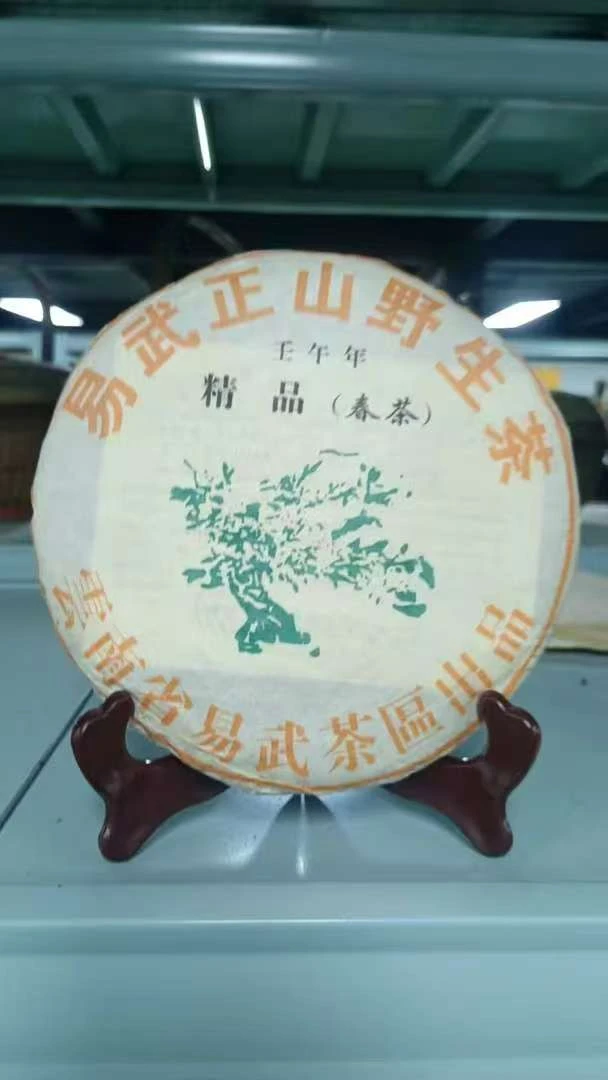 易武正山野生茶
壬午年
精品（春茶）
雲南省易武茶區出品